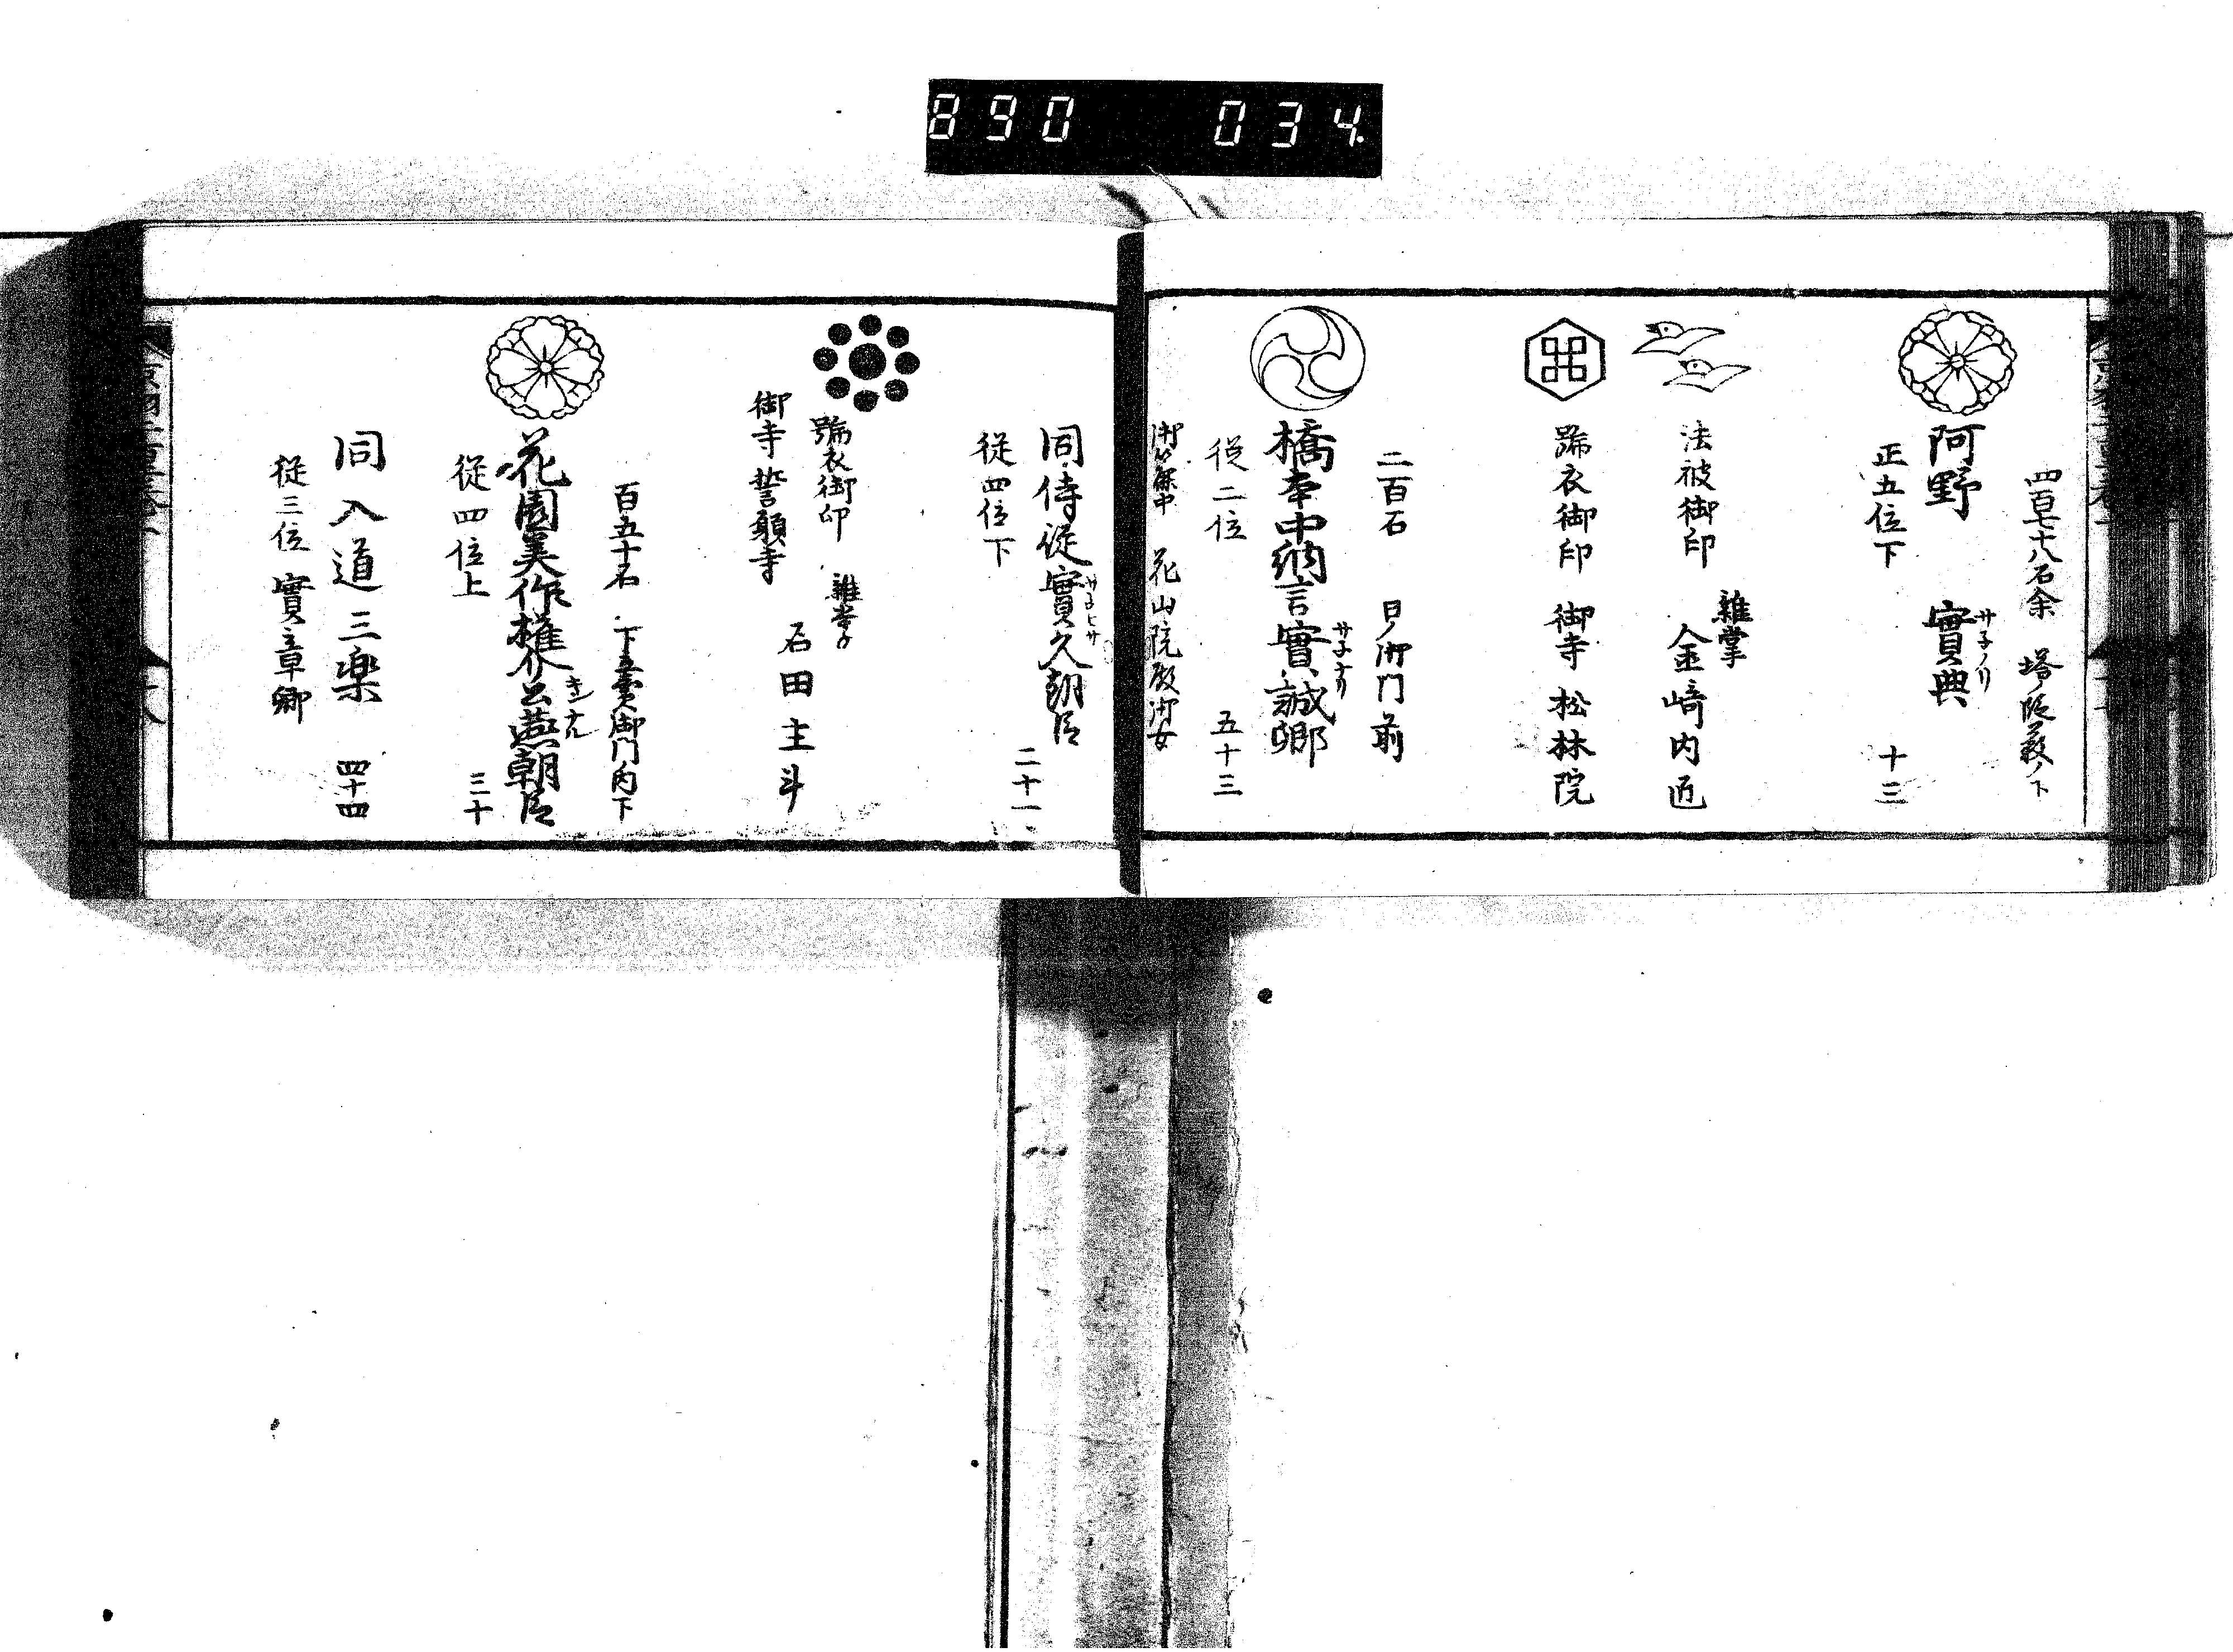 890 034
四百七十八石余 塔ノ段藪ノ下
阿野 實典
サネノリ
正五位下 十三
法被御印 雜掌 金崎内匠
號衣御印 御寺 松林院
二百石 日ノ御門前
橋本中納言實誠卿
サネナリ
從二位 五十三
御簾中 花山院殿御女
同侍從實久朝臣
サネヒサ
從四位下 二十一
號衣御印 雜掌 石田主斗
御寺誓願寺
百五十石 下立賣御門内下
花園美作權介公燕朝臣
キンナル
從四位上 三十
同入道三楽 四十四
從三位 實章卿